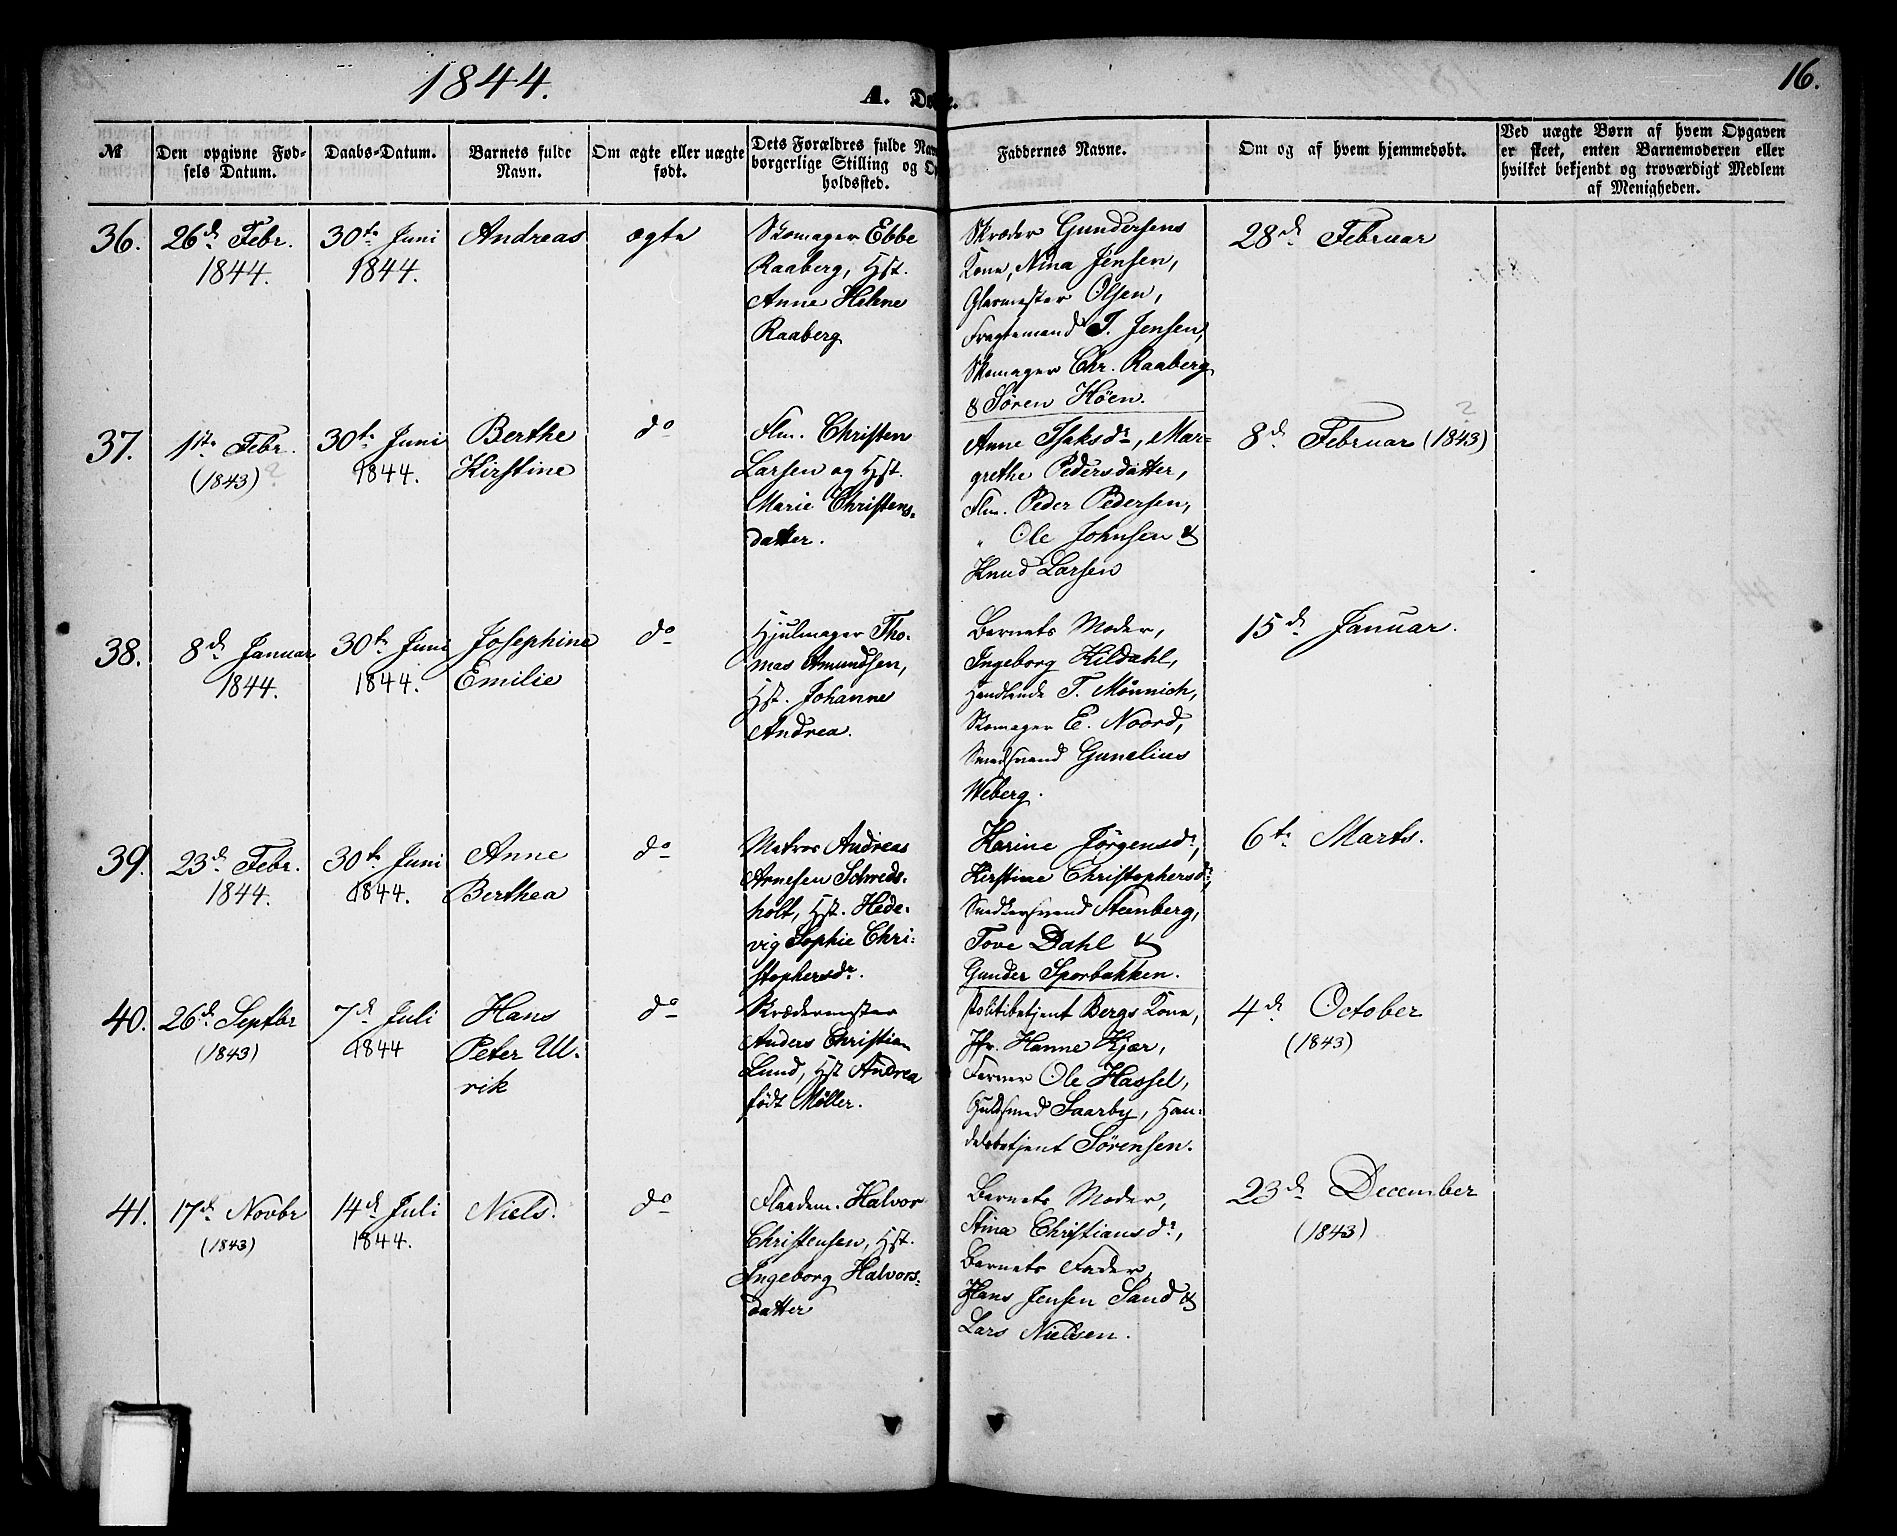 1844.
A. Døbte.
16.
№
Den opgivne Fød-
sels Datum.
Daabs-Datum.
Barnets fulde
Navn.
Om ægte eller uægte
født.
Dets Forældres fulde Nav
borgerlige Stilling og Op
holdssted.
Faddernes Navne.
Om og af hvem hjemmedøbt.
Ved uægte Børn af hvem Opgaven
er skeet, enten Barnemoderen eller
hvilket bekjendt og troværdigt Medlem
af Menigheden.
36.
26d. Febr.
1844.
30te Juni
1844.
Andreas
ægte
Skomager Ebbe
Raaberg, Hst.
Anne Helene
Raaberg
Skræder Gundersens
Kone, Nina Jensen,
Glarmester Olsen,
Fragtemand T. Jensen,
Skomager Chr. Raaberg
& Søren Höen.
28d. Februar
37.
1ste Febr.
(1843) ?
30te Juni
1844.
Berthe
Kirstine
do
Flm. Christen
Larsen og Hst.
Marie Christens-
datter.
Anne Isaksdr, Mar-
grethe Pedersdatter,
Flm. Peder Pedersen,
" Ole Johnsen &
Knud Larsen
8d. Februar (1843) ?
38.
8d. Januar
1844.
30te Juni
1844.
Josephine
Emilie
do
Hjulmager Tho-
mas Amundsen,
Hst. Johanne
Andrea.
Barnets Moder,
Ingeborg Kildahl,
Handlende T. Mönnich,
Skomager E. Noord,
Smedsvend Gunelius
Weberg.
15d. Januar.
39.
23d. Febr.
1844.
30te Juni
1844.
Anne
Berthea
do
Matros Andreas
Arnesen Schweds-
holt, Hst. Hede-
vig Sophie Chri-
stophersdr.
Karine Jörgensdr,
Kirstine Christophersdr,
Snedkersvend Steenberg,
Tove Dahl &
Gunder Sporbakken.
6te Marts.
40.
26d. Septbr
(1843)
7d. Juli
1844
Hans
Peter Ul-
rik
do
Skrædermester
Anders Christian
Lund, Hst Andrea
født Møller.
Politibetjent Bergs Kone,
Jfr. Hanne Kjær,
Farver Ole Hassel,
Guldsmed Saarby, Han-
delsbetjent Sörensen.
4d. October
(1843)
41.
17d. Novbr
(1843)
14d. Juli
1844.
Niels.
do
Flaadem. Halvor
Christensen, Hst.
Ingeborg Halvors-
datter
Barnets Moder,
Stina Christiansdr,
Barnets Fader,
Hans Jensen Sand &
Lars Nielsen.
23d. December
(1843)